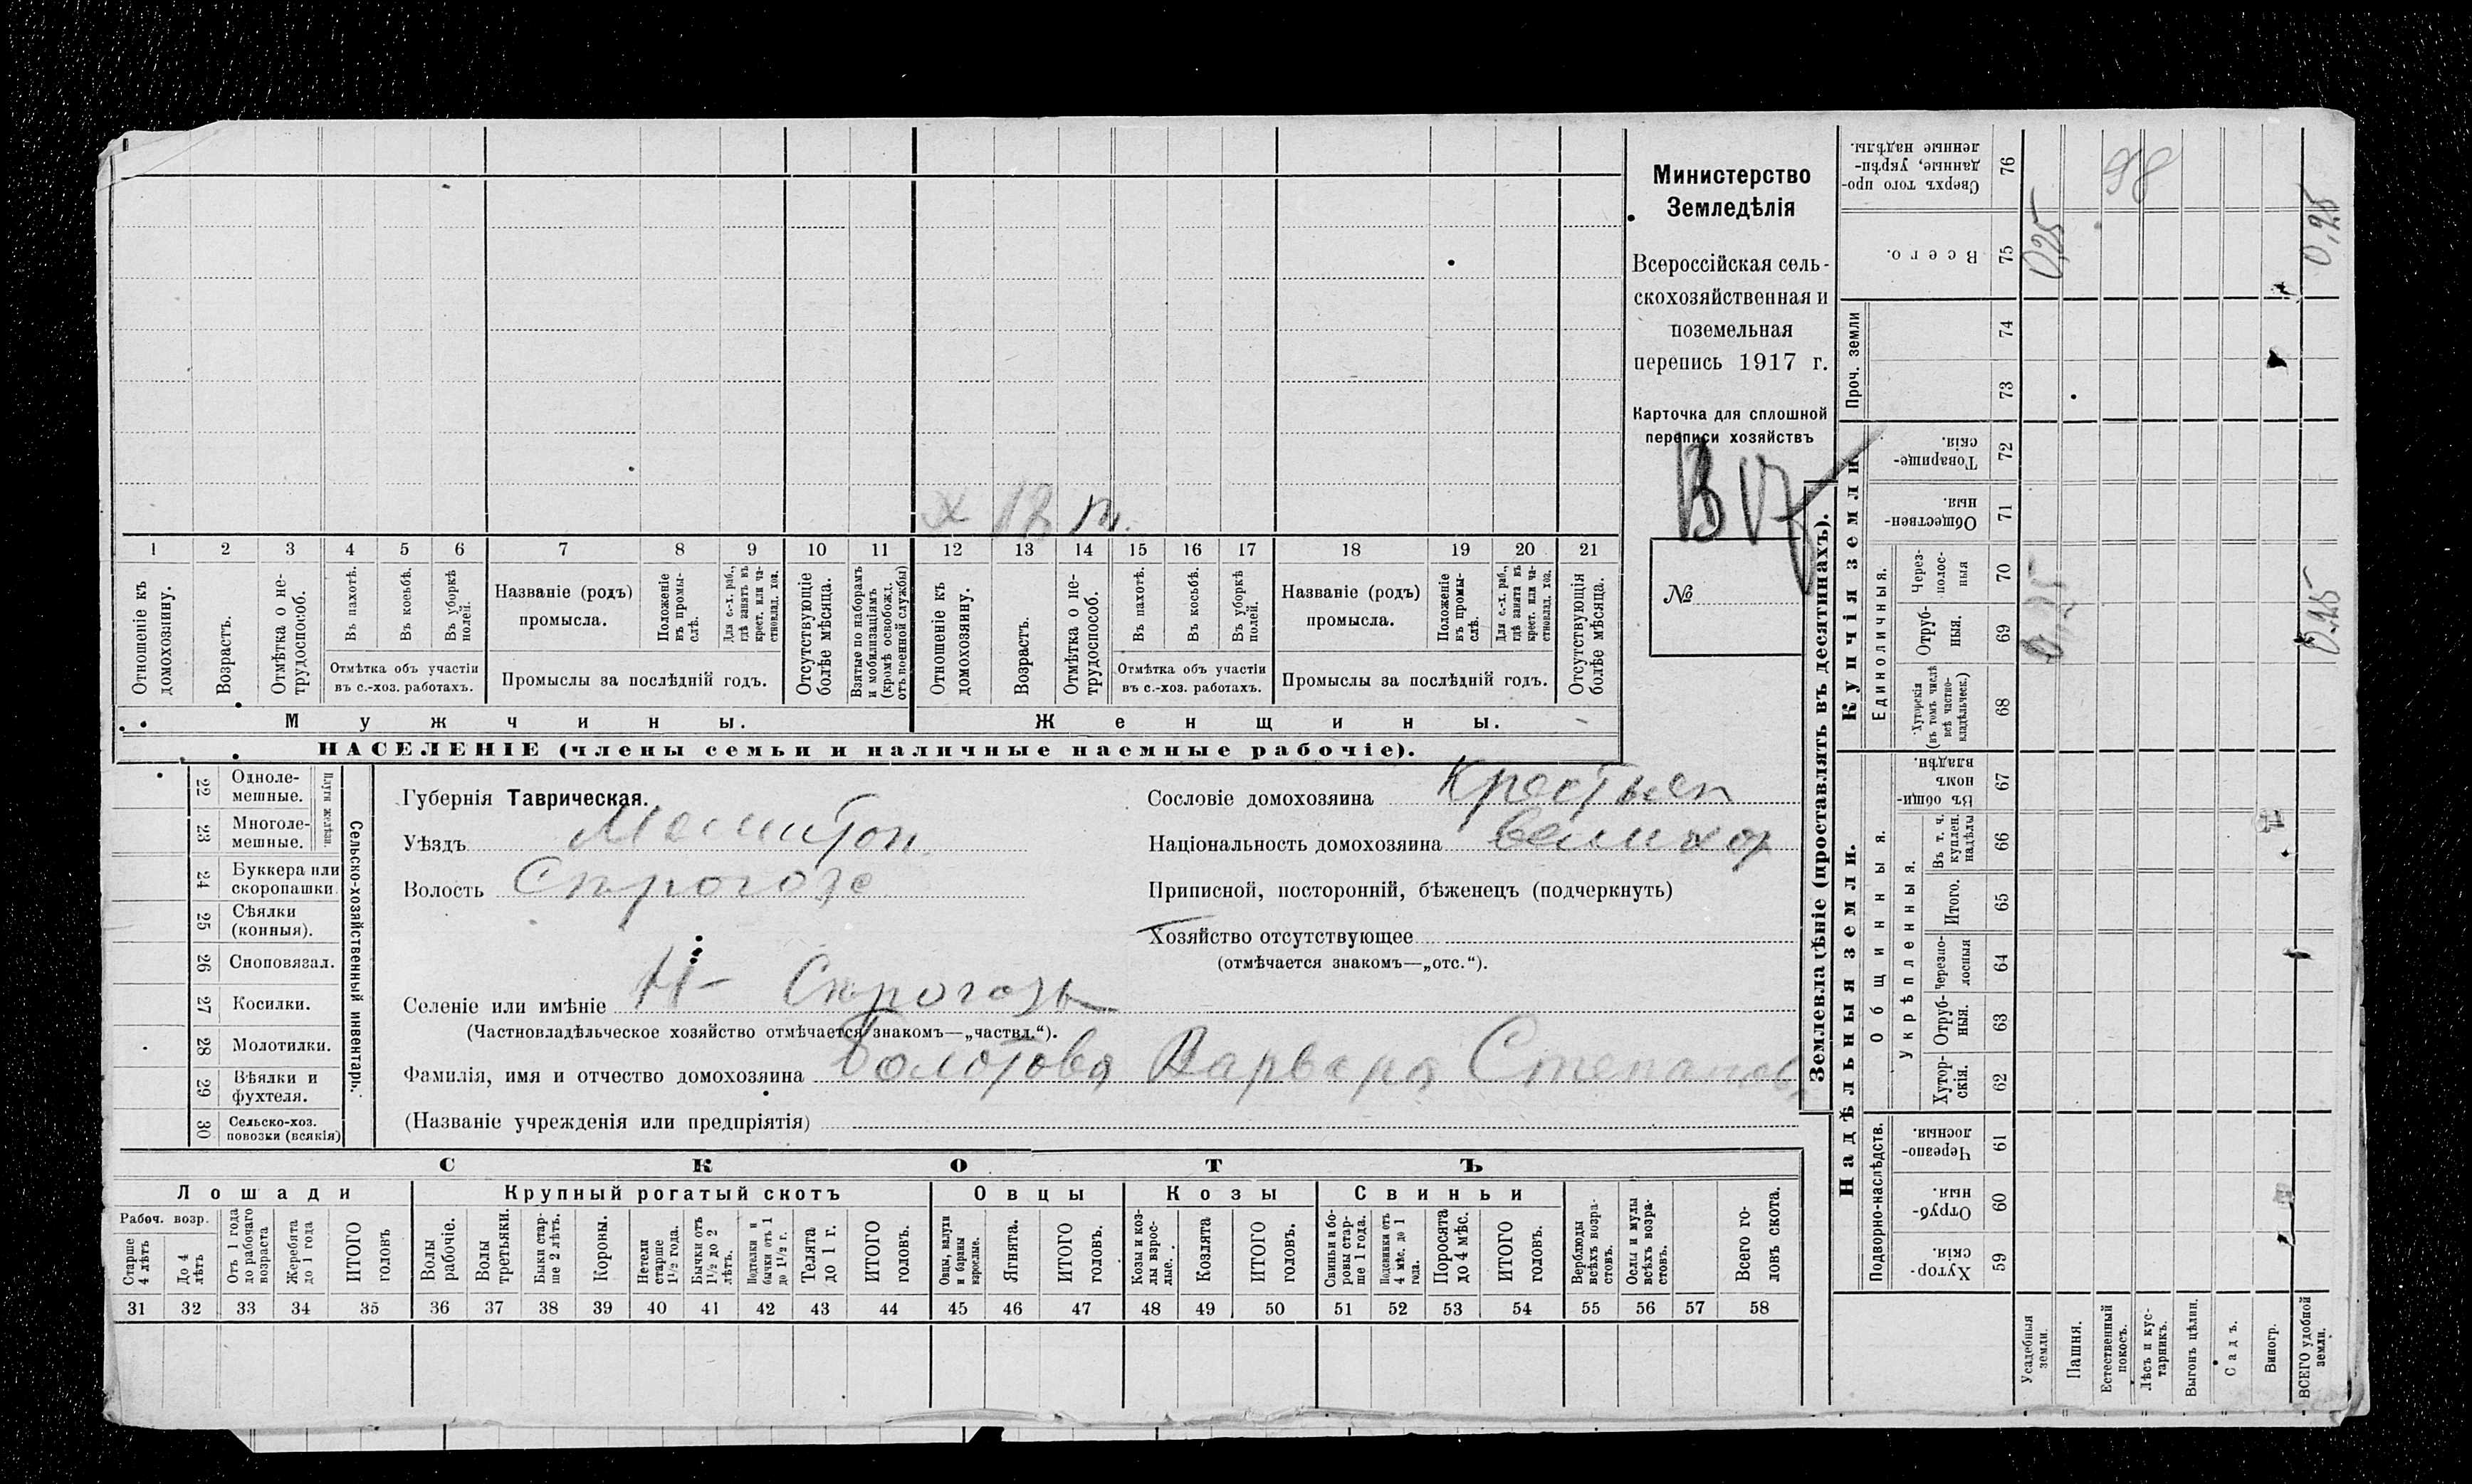 Министерство
Земледѣлія
Всероссійская сель-
скохозяйственная и
поземельная
перепись 1917 г.
Карточка для сплошной
переписи хозяйствъ
№
х 18 п.
1 2 3 4 5 6 7 8 9 10 11 12 13 14 15 16 17 18 19 20 21
Отношеніе къ домохозяину.
Возрастъ.
Отмѣтка о не-трудоспособ.
Въ пахотѣ.
Въ косьбѣ.
Въ уборкѣ полей.
Отмѣтка объ участіи
въ с.-хоз. работахъ.
Названіе (родъ)
промысла.
Положеніе въ промы-слѣ.
Для с.-х. раб., гдѣ занятъ въ крест. или ча-стновлад. хоз.
Промыслы за послѣдній годъ.
Отсутствующіе болѣе мѣсяца.
Взятые по наборамъ и мобилизаціямъ (кромѣ освобожд. отъ военной службы)
Отношеніе къ домохозяину.
Возрастъ.
Отмѣтка о не-трудоспособ.
Въ пахотѣ.
Въ косьбѣ.
Въ уборкѣ полей.
Отмѣтка объ участіи
въ с.-хоз. работахъ.
Названіе (родъ)
промысла.
Положеніе въ промы-слѣ.
Для с.-х. раб., гдѣ занята въ крест. или ча-стновлад. хоз.
Промыслы за послѣдній годъ.
Отсутствующія болѣе мѣсяца.
Мужчины.
Женщины.
НАСЕЛЕНІЕ (члены семьи и наличные наемные рабочіе).
Сельско-хозяйственный инвентарь.
Плуги желѣзн.
22 Одноле-
мешные.
23 Многоле-
мешные.
24 Буккера или
скоропашки.
25 Сѣялки
(конныя).
26 Сноповязал.
27 Косилки.
28 Молотилки.
29 Вѣялки и
фухтеля.
30 Сельско-хоз.
повозки (всякія)
Губернія Таврическая.
Уѣздъ Мелитоп
Волость
Селеніе или имѣніе
(Частновладѣльческое хозяйство отмѣчается знакомъ—„частвл.“).
Фамилія, имя и отчество домохозяина Болотова Варвара Степанов
(Названіе учрежденія или предпріятія)
Сословіе домохозяина Крестьян
Національность домохозяина великор
Приписной, посторонній, бѣженецъ (подчеркнуть)
Хозяйство отсутствующее
(отмѣчается знакомъ—„отс.“).
СКОТЪ
Лошади
Крупный рогатый скотъ
Овцы
Козы
Свиньи
Рабоч. возр.
Старше 4 лѣтъ
До 4 лѣтъ
Отъ 1 года до рабочаго возраста
Жеребята до 1 года
ИТОГО головъ
Волы рабочіе.
Волы третьяки.
Быки стар-ше 2 лѣтъ.
Коровы.
Нетели старше 1½ года.
Бычки отъ 1½ до 2 лѣтъ.
Подтелки и бычки отъ 1 до 1½ г.
Телята до 1 г.
ИТОГО головъ.
Овцы, валухи и бараны взрослые.
Ягнята.
ИТОГО головъ.
Козы и коз-лы взрос-лые.
Козлята
ИТОГО головъ.
Свиньи и бо-ровы стар-ше 1 года.
Подсвинки отъ 4 мѣс. до 1 года.
Поросята до 4 мѣс.
ИТОГО головъ.
Верблюды всѣхъ возра-стовъ.
Ослы и мулы всѣхъ возра-стовъ.
Всего го-ловъ скота.
31 32 33 34 35 36 37 38 39 40 41 42 43 44 45 46 47 48 49 50 51 52 53 54 55 56 57 58
Землевладѣніе (проставлять въ десятинахъ).
Надѣльныя земли.
Купчія земли
Проч. земли
Подворно-наслѣдств.
Общинныя.
Укрѣпленныя.
Единоличныя.
59 Хутор-скія.
60 Отруб-ныя.
61 Черезпо-лосныя.
62 Хутор-скія.
63 Отруб-ныя.
64 Черезпо-лосныя
65 Итого.
66 Въ т. ч. куплен. надѣлы
67 Въ общи-номъ владѣн.
68 Хуторскія (въ томъ числѣ всѣ частно-владѣльческ.)
69 Отруб-ныя.
70 Через-полос-ныя
71 Обществен-ныя
72 Товарище-скія.
73
74
75 Всего.
76 Сверхъ того про-данные, укрѣп-ленные надѣлы.
Усадебныя земли.
Пашня.
Естественный покосъ.
Лѣсъ и кус-тарникъ.
Выгонъ цѣлин.
Садъ.
Виногр.
ВСЕГО удобной земли.
0,25
98
0,25
0,25
0,25